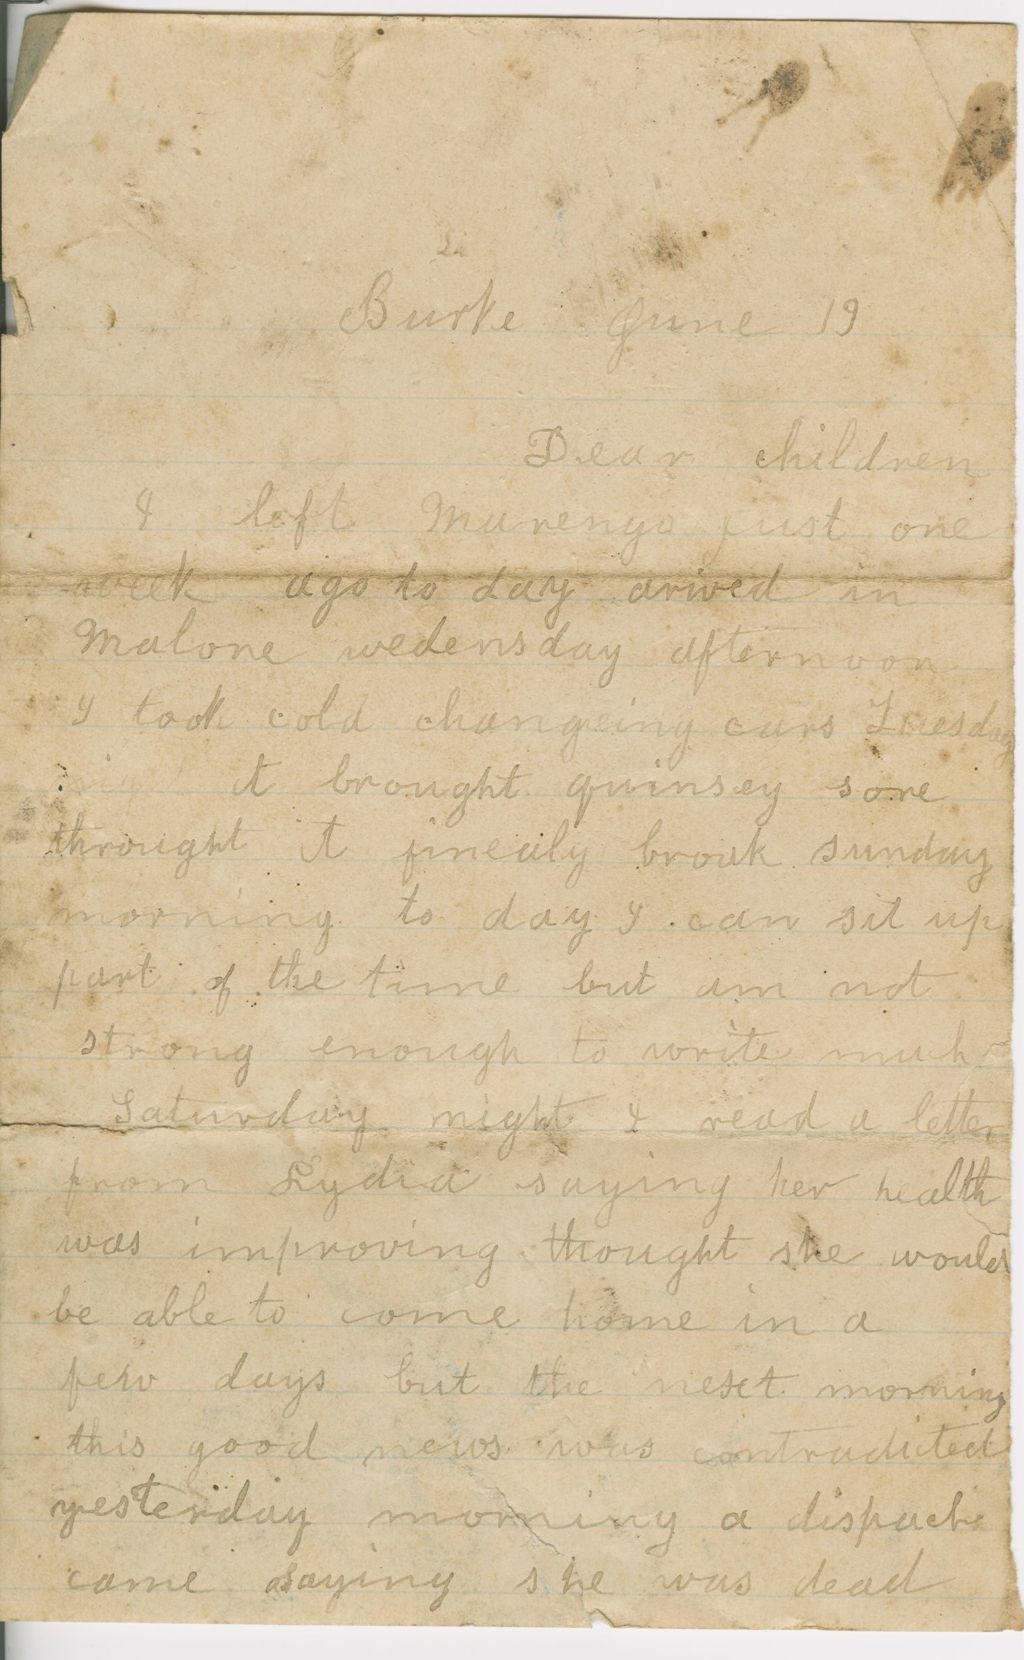 Burke June 19
Dear children
I left Marengo just one
week ago to day arived in
Malone wedensday afternoon
I took cold changeing cars Tuesday
night it brought quinsey sore
throught it finealy broak sunday
morning to day I can sit up
part of the time but am not
strong enough to write much
Saturday night I read a letter
from Lydia saying her health
was improving thought she would
be able to come home in a
few days but the next morning
this good news was contradicted
yesterday morning a dispache
came saying she was dead